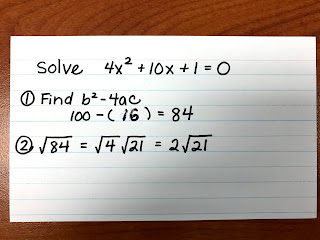 Solve 4x² + 10x + 1 = 0
① Find b² - 4ac
100 - ( 16 ) = 84
② √84 = √4 √21 = 2√21